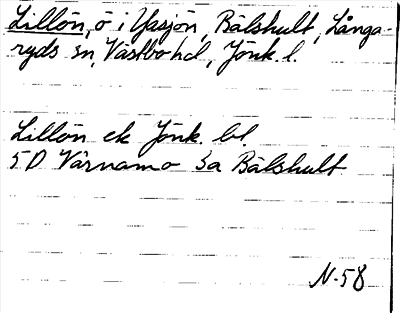 Lillön, ö i Yasjön, Bälshult, Långa-
ryds sn, Västbo hd, Jönk. l.
Lillön ek Jönk. bl.
5 D Värnamo 3a Bälshult
N-58